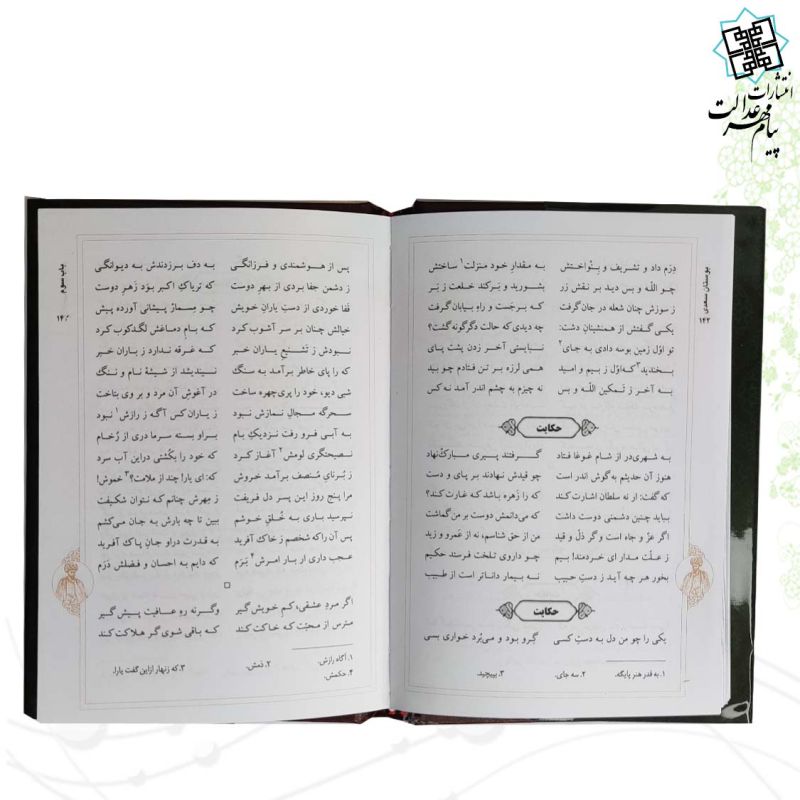 انتشارات
پیام مهر عدالت
بوستان سعدی
۱۴۲
دِرَم داد و تشریف و بِنْواختش به مقدارِ خود منزلت۱ ساختش
چو اللّه و بس دید بر نقش زر بشورید و برکند خلعت ز بَر
ز سوزش چنان شعله در جان گرفت که برجَست و راهِ بیابان گرفت
یکی گفتش از همنشینانِ دشت: چه دیدی که حالت دگرگونه گشت؟
تو اوّل زمین بوسه دادی به جای۲ نبایستی آخر زدن پشت پای
بخندید۳ که اوّل ز بیم و امید همی لرزه بر تن فتادم چو بید
به آخر ز تمکین اللّه و بس نه چیزم به چشم اندر آمد نه کس
حکایت
به شهری در از شام غوغا فتاد گرفتند پیری مبارک‌نهاد
هنوز آن حدیثم به گوش اندر است چو قیدش نهادند بر پای و دست
که گفت: ار نه سلطان اشارت کند که را زَهره باشد که غارت کند؟
بباید چنین دشمنی دوست داشت که می‌دانمش دوست بر من گماشت
اگر عزّ و جاه است و گر ذلّ و قید من از حق شناسم، نه از عَمرو و زید
ز علّت مدار ای خردمند! بیم چو داروی تلخت فرستد حکیم
بخور هر چه آید ز دستِ حبیب نه بیمار داناتر است از طبیب
حکایت
یکی را چو من دل به دستِ کسی گِرو بود و می‌بُرد خواری بسی
۱. به قدر هنر پایگه. ۲. سه جای. ۳. بپیچید.
باب سوم
پس از هوشمندی و فرزانگی به دف برزدندش به دیوانگی
ز دشمن جفا بردی از بهرِ دوست که تریاکِ اکبر بوَد زهرِ دوست
قفا خوردی از دستِ یارانِ خویش چو مسمارْ پیشانی آورده پیش
خیالش چنان بر سر آشوب کرد که بامِ دماغش لگدکوب کرد
نبودش ز تشنیعِ یاران خبر که غرقه ندارد ز باران خبر
که را پای خاطر برآمد به سنگ نیندیشد از شیشهٔ نام و ننگ
شبی دیو، خود را پری‌چهره ساخت در آغوشِ آن مرد و بر وی بتاخت
سحرگه مجالِ نمازش نبود ز یاران کس آگه ز رازش۱ نبود
به آبی فرو رفت نزدیکِ بام بر او بسته سرما دری از رُخام
نصیحتگری لومش۲ آغاز کرد که خود را بکُشتی در این آب سرد
ز بُرنایِ مُنصف برآمد خروش که: ای یار! چند از ملامت؟۳ خموش!
مرا پنج روز این پسر دل فریفت ز مِهرش چنانم که نتوان شکیفت
نپرسید باری به خُلقِ خوشم ببین تا چه بارش به جان می‌کشم
پس آن را که شخصم ز خاک آفرید به قدرت در او جانِ پاک آفرید
عجب داری ار بارِ امرش۴ بَرَم که دایم به احسان و فضلش دَرَم
اگر مردِ عشقی، کم خویش گیر وگرنه رهِ عافیت پیش گیر
مترس از محبّت که خاکت کند که باقی شوی گر هلاکت کند
۱. آگاه رازش. ۲. ذمش. ۳. که زنهار ازاین گفت یارا.
۴. حکمش.